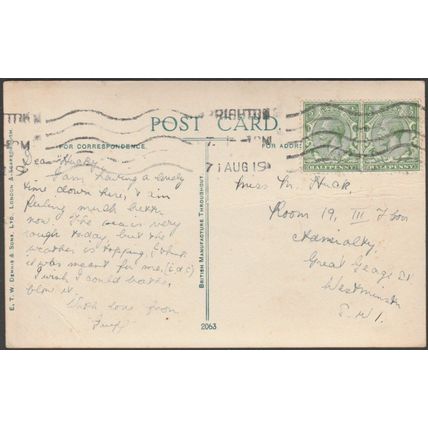 POST CARD.
BRIGHTON
7 AUG 19
HALFPENNY HALFPENNY
FOR CORRESPONDENCE
FOR ADDR
Dear "Hucky"
I am having a lovely
time down here, & am
feeling much better
now. The sea is very
rough today but the
weather is topping, I think
it was meant for me. (i d c)
I wish I could bathe,
blow it.
With love from
Miss M. Huck,
Room 19, III Floor
Admiralty
Great George St
Westminster
S.W.1.
E. T. W. DENNIS & SONS, LTD. LONDON & SCARBOROUGH.
BRITISH MANUFACTURE THROUGHOUT
2063